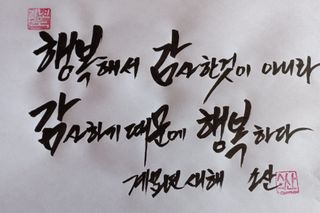 행복해서 감사한것이 아니라
감사하기 때문에 행복하다
계묘년 새해 소산